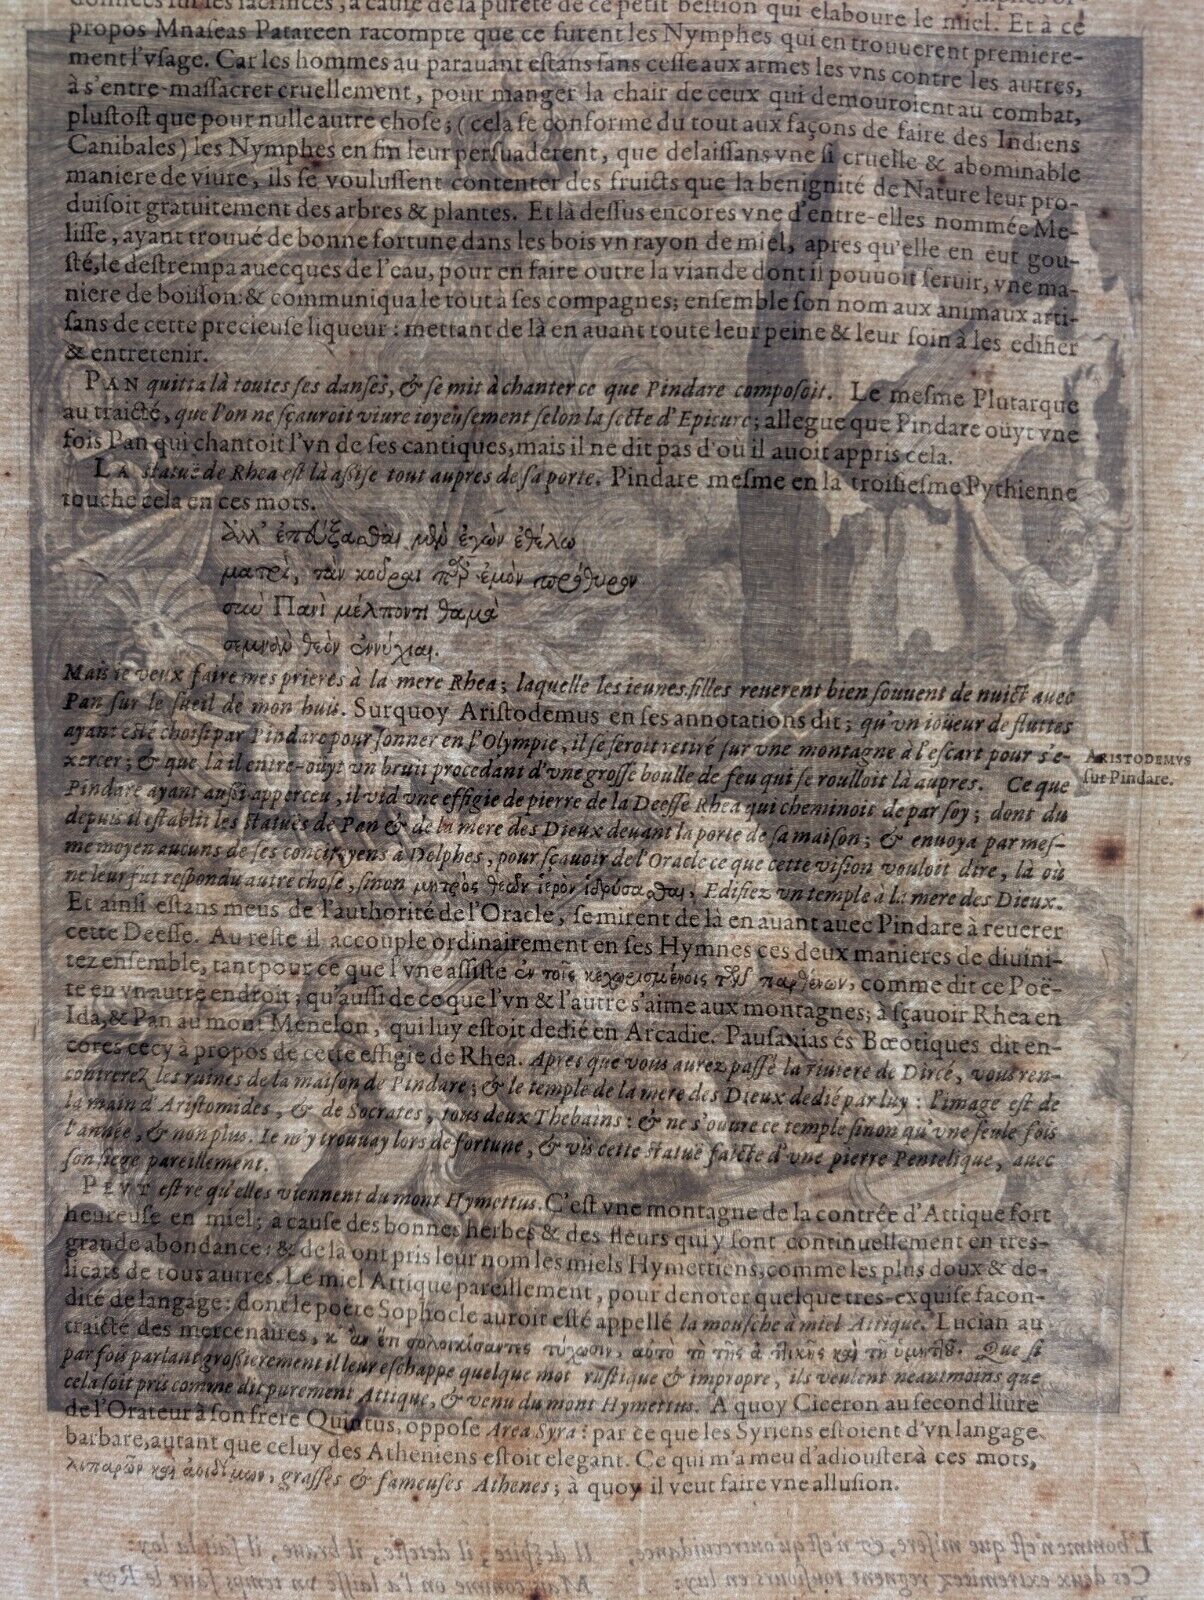 données sur les sacrifices, à cause de la pureté de ce petit bestion qui elaboure le miel. Et à ce
propos Mnaseas Patareen racompte que ce furent les Nymphes qui en trouuerent premiere-
ment l'vsage. Car les hommes au parauant estans sans cesse aux armes les vns contre les autres,
à s'entre-massacrer cruellement, pour manger la chair de ceux qui demouroient au combat,
plustost que pour nulle autre chose; (cela se conforme du tout aux façons de faire des Indiens
Canibales) les Nymphes en fin leur persuaderent, que delaissans vne si cruelle & abominable
maniere de viure, ils se voulussent contenter des fruicts que la benignité de Nature leur pro-
duisoit gratuitement des arbres & plantes. Et là dessus encores vne d'entre-elles nommée Me-
lisse, ayant trouué de bonne fortune dans les bois vn rayon de miel, apres qu'elle en eut gou-
sté, le destrempa auecques de l'eau, pour en faire outre la viande dont il pouuoit seruir, vne ma-
niere de boisson: & communiqua le tout à ses compagnes; ensemble son nom aux animaux arti-
sans de cette precieuse liqueur: mettant de là en auant toute leur peine & leur soin à les edifier
& entretenir.
PAN quitta là toutes ses danses, & se mit à chanter ce que Pindare composoit. Le mesme Plutarque
au traicté, que l'on ne sçauroit viure ioyeusement selon la secte d'Epicure; allegue que Pindare ouyt vne
fois Pan qui chantoit l'vn de ses cantiques, mais il ne dit pas d'où il auoit appris cela.
LA statuë de Rhea est là assise tout aupres de sa porte. Pindare mesme en la troisiesme Pythienne
touche cela en ces mots.
Ἀλλ' ἐπεύξασθαι μὲν ἐγὼν ἐθέλω
ματρὶ, τὰν κοῦραι παρ' ἐμὸν πρόθυρον
σὺν Πανὶ μέλπονται θαμὰ
σεμνὰν θεὸν ἐννύχιαι.
Mais ie veux faire mes prieres à la mere Rhea; laquelle les ieunes filles reuerent bien souuent de nuict auec
Pan sur le sueil de mon huis. Surquoy Aristodemus en ses annotations dit; qu'vn ioueur de fluttes
ayant esté choisi par Pindare pour sonner en l'Olympie, il se seroit retiré sur vne montagne à l'escart pour s'e-
xercer; & que là il entre-ouyt vn bruit procedant d'vne grosse boulle de feu qui se roulloit là aupres. Ce que
Pindare ayant aussi apperceu, il vid vne effigie de pierre de la Deesse Rhea qui cheminoit de par soy; dont du
depuis il establit les statuës de Pan & de la mere des Dieux deuant la porte de sa maison; & enuoya par mes-
me moyen aucuns de ses concitoyens à Delphes, pour sçauoir de l'Oracle ce que cette vision vouloit dire, là où
ne leur fut respondu autre chose, sinon μητρὸς θεῶν ἱερὸν ἱδρύσασθαι, Edifiez vn temple à la mere des Dieux.
Et ainsi estans meus de l'authorité de l'Oracle, se mirent de là en auant auec Pindare à reuerer
cette Deesse. Au reste il accouple ordinairement en ses Hymnes ces deux manieres de diuini-
tez ensemble, tant pour ce que l'vne assiste ἐν τοῖς κεχωρισμένοις τῶν παρθένων, comme dit ce Poë-
te en vn autre endroit; qu'aussi de ce que l'vn & l'autre s'aime aux montagnes; à sçauoir Rhea en
Ida, & Pan au mont Menelon, qui luy estoit dedié en Arcadie. Pausanias és Bœotiques dit en-
cores cecy à propos de cette effigie de Rhea. Apres que vous aurez passé la riuiere de Dircé, vous ren-
contrerez les ruines de la maison de Pindare; & le temple de la mere des Dieux dedié par luy: l'image est de
la main d'Aristomides, & de Socrates, tous deux Thebains: & ne s'ouure ce temple sinon qu'vne seule fois
l'année, & non plus. Ie m'y trouuay lors de fortune, & vis cette statuë faicte d'vne pierre Pentelique, auec
son siege pareillement.
PEVT estre qu'elles viennent du mont Hymettus. C'est vne montagne de la contrée d'Attique fort
heureuse en miel; à cause des bonnes herbes & des fleurs qui y sont continuellement en tres-
grande abondance: & de la ont pris leur nom les miels Hymettiens, comme les plus doux & de-
licats de tous autres. Le miel Attique pareillement, pour denoter quelque tres-exquise facon-
dité de langage: dont le poëte Sophocle auroit esté appellé la mousche à miel Attique. Lucian au
traicté des mercenaires, κ' ἂν
par fois parlant grossierement il leur eschappe quelque mot rustique & impropre, ils veulent neautmoins que
cela soit pris comme dit purement Attique, & venu du mont Hymettus. A quoy Ciceron au second liure
de l'Orateur à son frere Quintus, oppose Area Syra: par ce que les Syriens estoient d'vn langage
barbare, autant que celuy des Atheniens estoit elegant. Ce qui m'a meu d'adiouster à ces mots,
λιπαρῶν καὶ ἀοιδίμων, grasses & fameuses Athenes; à quoy il veut faire vne allusion.
ARISTODEMVS
sur Pindare.
L'homme n'est que misere, & n'est qu'outrecuidance,
Ces deux extremitez regnent tousiours en luy:
Il despite, il deteste, il braue, il fait la loy:
Mais comme on l'a laissé vn temps faire le Roy,